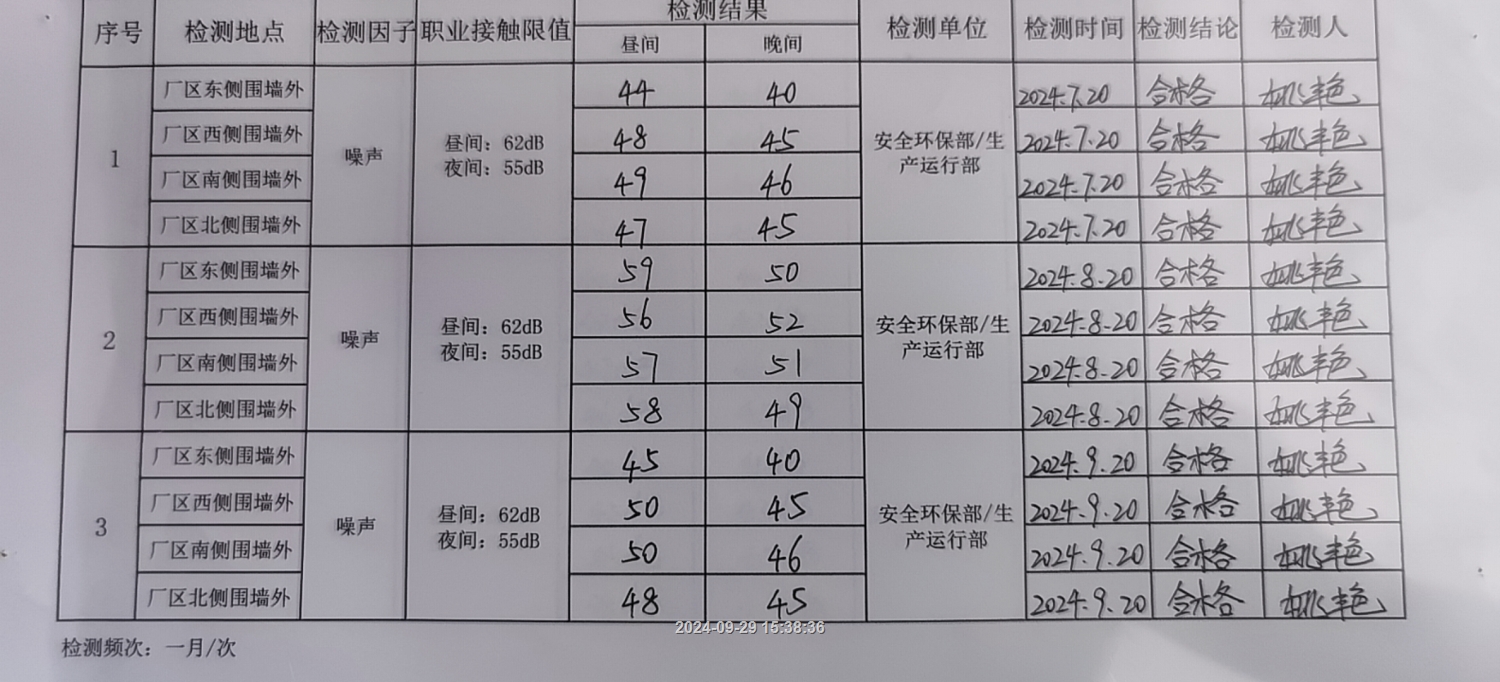 序号 检测地点 检测因子 职业接触限值 检测结果 检测单位 检测时间 检测结论 检测人
昼间 晚间
1 噪声 昼间：62dB 夜间：55dB 安全环保部/生产运行部
厂区东侧围墙外 44 40 2024.7.20 合格 姚丰色
厂区西侧围墙外 48 45 2024.7.20 合格 姚丰色
厂区南侧围墙外 49 46 2024.7.20 合格 姚丰色
厂区北侧围墙外 47 45 2024.7.20 合格 姚丰色
2 噪声 昼间：62dB 夜间：55dB 安全环保部/生产运行部
厂区东侧围墙外 59 50 2024.8.20 合格 姚丰色
厂区西侧围墙外 56 52 2024.8.20 合格 姚丰色
厂区南侧围墙外 57 51 2024.8.20 合格 姚丰色
厂区北侧围墙外 58 49 2024.8.20 合格 姚丰色
3 噪声 昼间：62dB 夜间：55dB 安全环保部/生产运行部
厂区东侧围墙外 45 40 2024.9.20 合格 姚丰色
厂区西侧围墙外 50 45 2024.9.20 合格 姚丰色
厂区南侧围墙外 50 46 2024.9.20 合格 姚丰色
厂区北侧围墙外 48 45 2024.9.20 合格 姚丰色
2024-09-29 15:38:36
检测频次：一月/次